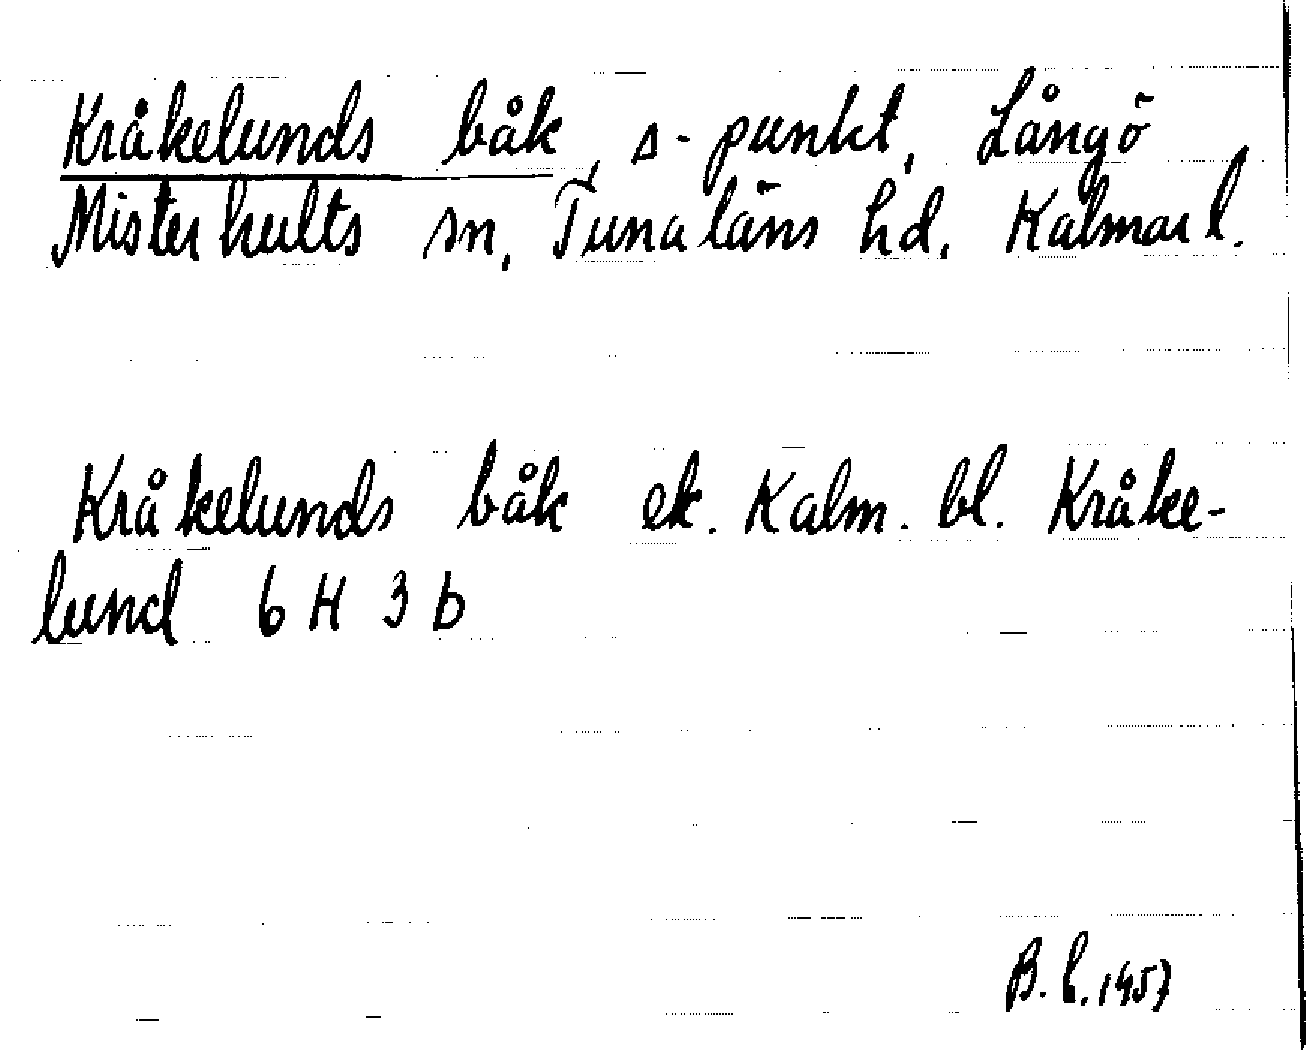 Kråkelunds båk, s-punkt, Långö
Misterhults sn, Tunaläns hd, Kalmar l.
Kråkelunds båk ek. Kalm. bl. Kråke-
lund 6 H 3 b
B. L. 1957